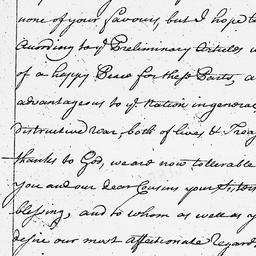 none of your favours, but I hope to
according to ye Preliminary Articles
of a happy Peace for these Parts, a
advantageous to ye Nation in genera
distructive War, both of lives &
thanks to God, we are now tollerable
you and our dear Cousins your sisters
blessing, and to whom as well as y
desire our most affectionate Regard